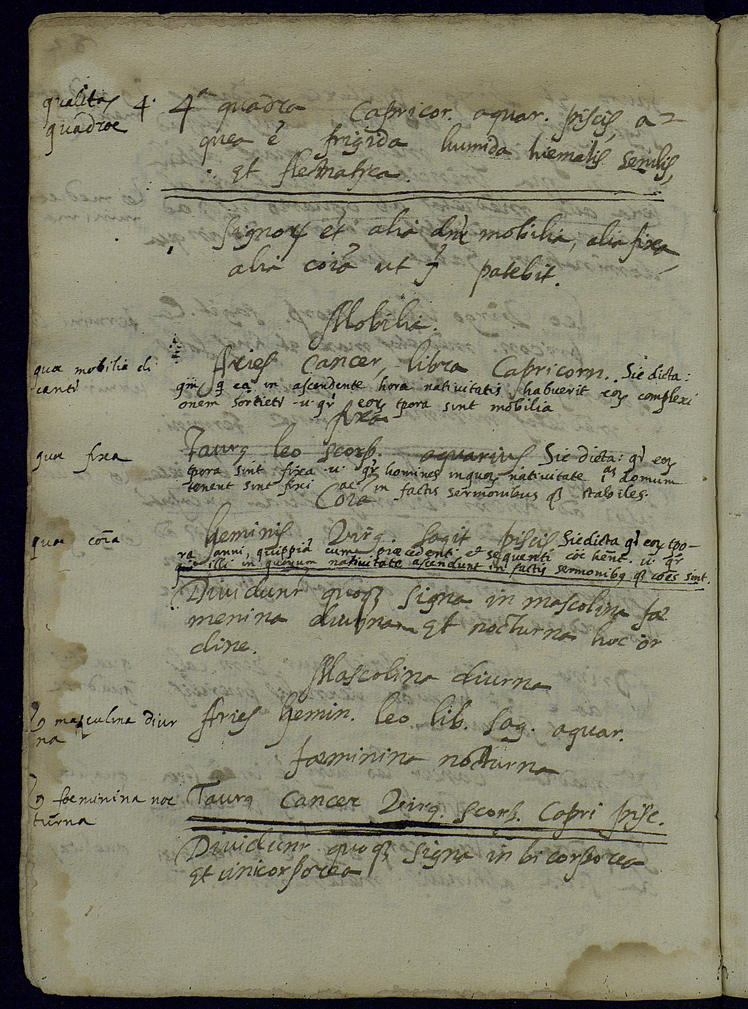 qualitas 4.
quadrae
4a quadra Capricor. aquar. piscis, a
quea ē frigida humida hiemalis senilis,
et flegmatica.
Signorū et alia mobilia, alia fixa,
alia coīa ut patebit.
Mobilia.
quae mobilia di
cantr
Aries Cancer, libra Capricorn. Sic dicta:
q ea in ascendente hora nativitatis habuerit eorū complexi
onem sortietr eorū tpora sunt mobilia
fixa
quae fixa
Taurq leo scorp. aquarius Sic dicta: qr eorū
tpora sunt fixa qr homines in quorū nativitate domum
tenent sunt fixi ac in factis sermonibus qz stabiles.
Coīa
quae coīa
Geminis Virg. sagit piscis Sic dicta qr eorū tpo-
ra anni, cum praecedenti et sequenti hēnt
illi in quorum nativitate ascendunt in factis sermonibq qz cōes sint.
Dividunr quoqz signa in mascolina foe
menina diurna et nocturna hoc or
dine.
Mascolina diurna
masculina diur
na
Aries Gemin. leo lib. sag. aquar.
foeminina nocturna
foeminina noc
turna
Taurq Cancer Virg. scorp. Capri pisc.
Dividunr quoqz signa in bicorporea
et unicorporea